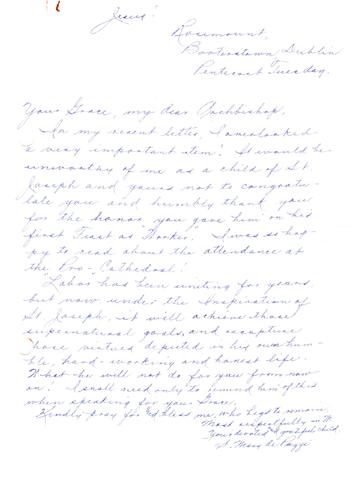 Jesus!
Rosemount,
Booterstown Dublin
Pentecost Tuesday.
Your Grace, my dear Archbishop,
In my recent letter, I overlooked
a very important item! It would be
unworthy of me as a child of St.
Joseph and yours not to congratu-
late you and humbly thank you
for the honor you gave him on his
first Feast as "Worker." I was so hap-
py to read about the attendance at
the Pro-Cathedral!
Labor has been uniting for years
but now under the Inspiration of
St. Joseph, it will achieve those
supernatural goals, and
those virtues depicted in his own hum-
ble, hard-working and honest life.
What he will not do for you from now
on! I shall need only to remind him of this
when speaking for you Grace.
Kindly pray for & bless me, who begs to remain
Most respectfully in
Your devoted & grateful child,
S. Mary de Pazzi